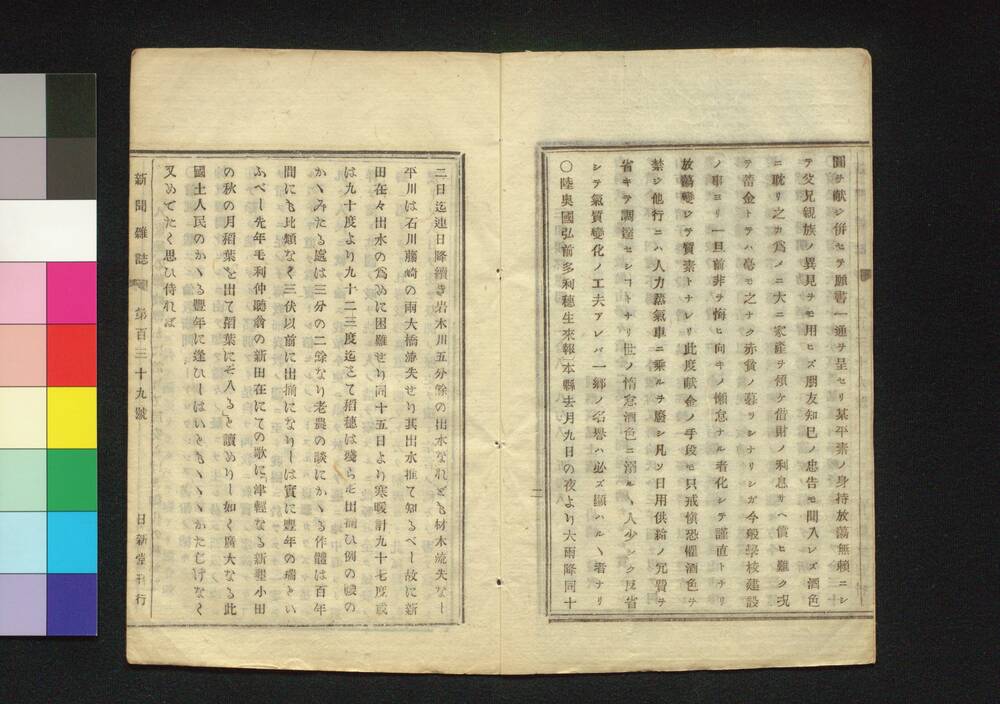 圓ヲ献シ併セテ願書一通ヲ呈セリ某平素ノ身持放蕩無賴ニシ
テ父兄親族ノ異見ヲモ用ヒズ朋友知巳ノ忠告モ聞入レズ酒色
ニ耽リ之カ爲メニ大ニ家産ヲ傾ケ借財ノ利息サヘ償ヒ難ク况
テ蓄金トテハ毫モ之ナク赤貧ノ暮ヲシナリシガ今般學校建設
ノ事ヨリ一旦前非ヲ悔ヒ向キノ懶怠ナル者化シテ謹直トナリ
放蕩變シテ質素トナレリ此度献金ノ手段モ只戒愼恐懼酒色ヲ
禁ジ他行ニハ人力蒸氣車ニ乘ルヲ廢シ凡ソ日用供給ノ冗費ヲ
省キテ調達セシコトナリ世ノ惰怠酒色ニ溺ルヽ人少シク反省
シテ氣質變化ノ工夫アレバ一鄕ノ名譽ハ必ズ顯ハルヽ者ナリ
〇陸奥國弘前多利穗生來報〕本縣去月九日の夜より大雨降同十
二日迄連日降續き岩木川五分餘の出水なれども材木流失なし
平川は石川藤崎の兩大橋滲失せり其出水推て知るべし故に新
田在々出水の爲めに困難せり同十五日より寒暖計九十七度或
は九十度より九十二三度迄にて稻穗は殘らず出揃ひ例の蝗の
かゝみたる處は三分の二餘なり老農の談にかゝる作體は百年
間にも比類なく三伏以前に出揃になりしは實に豐年の瑞とい
ふべし先年毛利仲聽翁の新田在にての歌に津輕なる新墾小田
の秋の月稻葉を出て稻葉にぞ入ると讀めりし如く廣大なる此
國土人民のかゝる豐年に逢ひしはいともゝゝゝかた亡けなく
又めでたく思ひ侍れば
新聞雜誌 第百三十九號 日新堂刊行
二